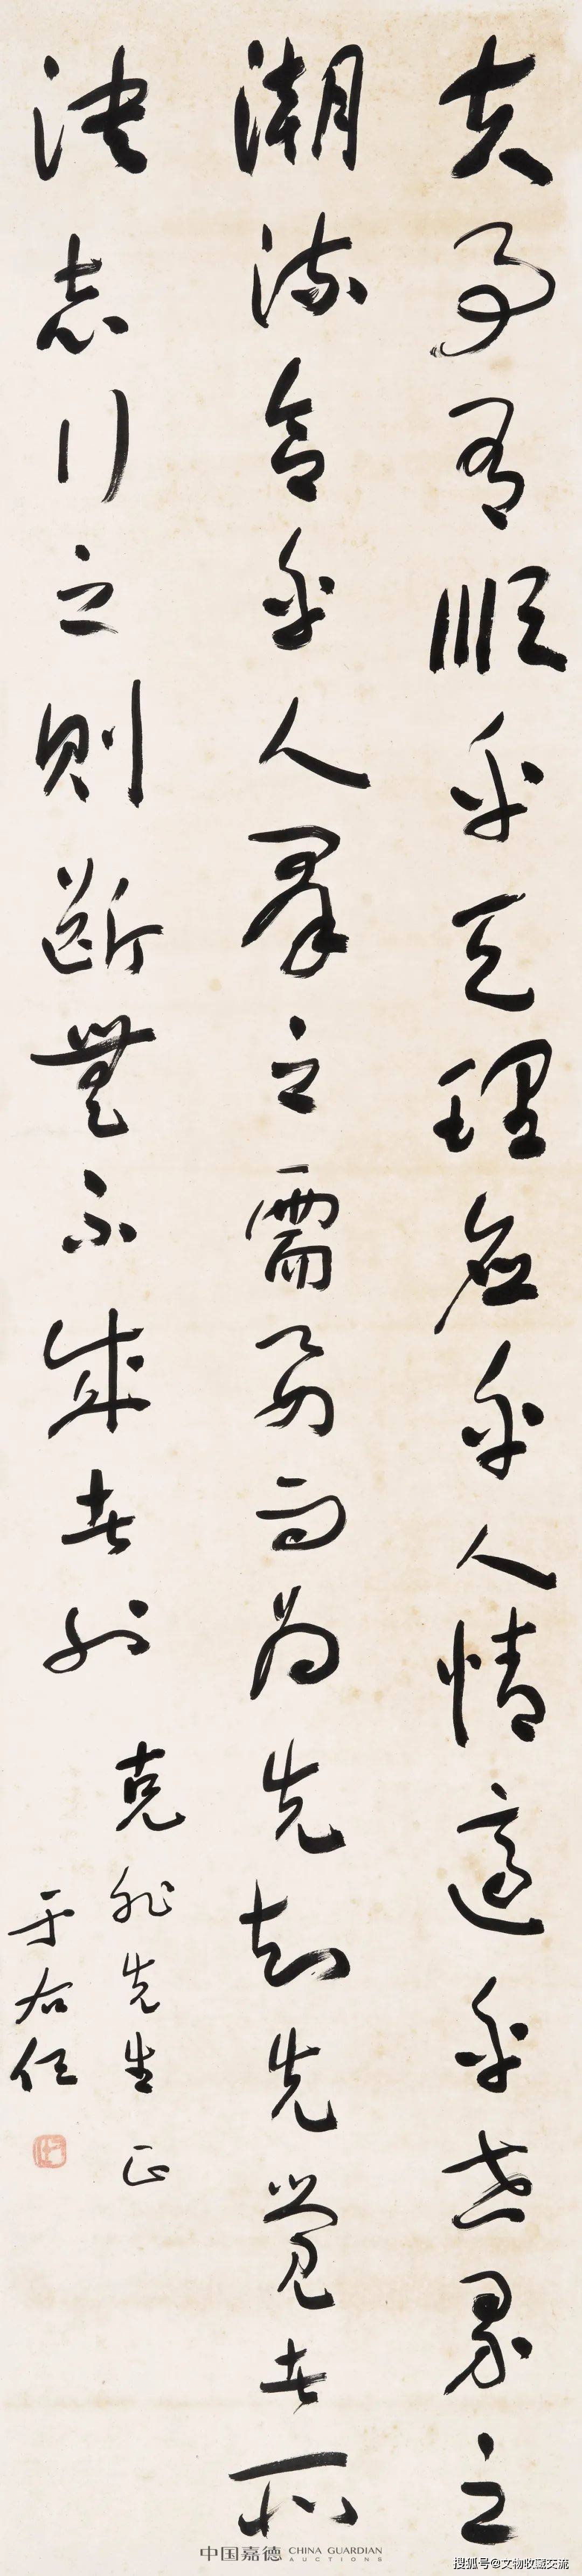 夫事有順乎天理應乎人情適乎世界之
潮流合乎人群之需要而為先知先覺者所
決志行之則斷無不成者也
克
先生正
于右任
中国嘉德 CHINA GUARDIAN
AUCTIONS
搜狐号@文物收藏交流